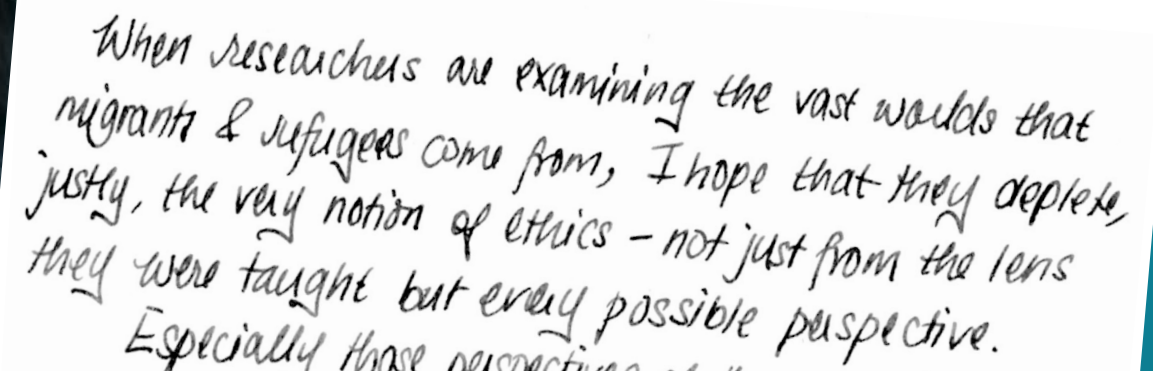 When researchers are examining the vast worlds that
migrants & refugees come from, I hope that they deplete,
justly, the very notion of ethics – not just from the lens
they were taught but every possible perspective.
Especially those perspectives